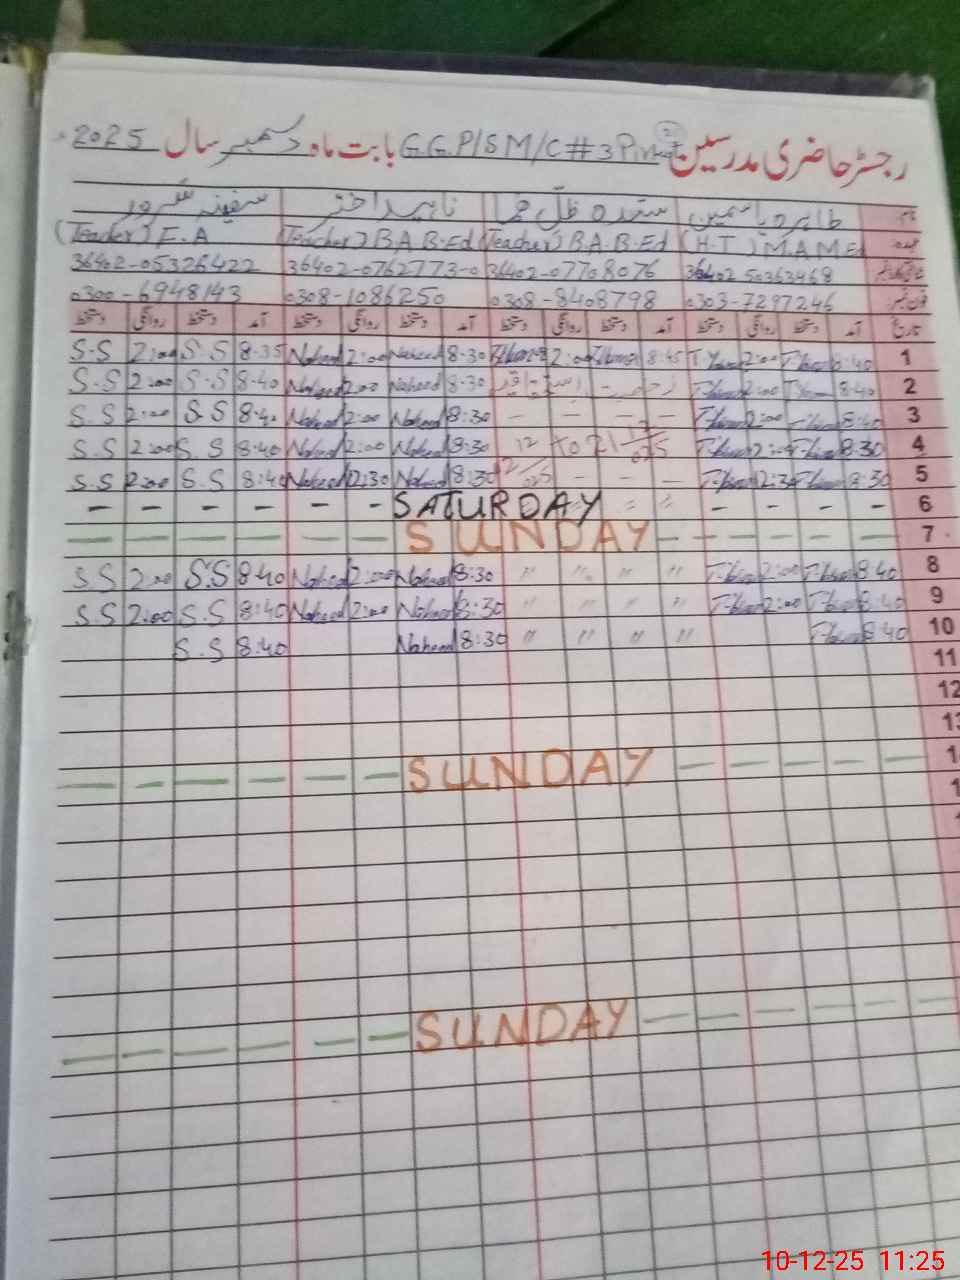 رجسٹر حاضری مدرسین G.G.P/S M/C # 3 بابت ماہ دسمبر سال 2025
نام طاہرہ یاسمین سیدہ ظلِ ہما ناہید اختر سفینہ سرور
عہدہ (H.T) M.A M.Ed (Teacher) B.A B.Ed (Teacher) B.A B.Ed (Teacher) F.A
36402-07708076 36402-0762773-0 36402-05326422
0303-7297246 0308-8408798 0308-1086250 0300-6948143
تاریخ آمد دستخط روانگی دستخط آمد دستخط روانگی دستخط آمد دستخط روانگی دستخط آمد دستخط روانگی دستخط
1 8:40 2:00 8:45 2:00 8:30 Naheed 2:00 Naheed 8:35 S.S 2:00 S.S
2 8:40 2:00 رخصت 8:30 Naheed 2:00 Naheed 8:40 S.S 2:00 S.S
3 8:40 2:00 – – – – 8:30 Naheed 2:00 Naheed 8:40 S.S 2:00 S.S
4 8:30 12 to 21 8:30 Naheed 2:00 Naheed 8:40 S.S 2:00 S.S
5 8:30 12:30 – – – 8:30 Naheed 12:30 Naheed 8:40 S.S 2:00 S.S
6 SATURDAY
7 SUNDAY
8 8:40 2:00 " " " " 8:30 Naheed 2:00 Naheed 8:40 S.S 2:00 S.S
9 8:40 2:00 " " " " 8:30 Naheed 2:00 Naheed 8:40 S.S 2:00 S.S
10 8:40 " " " " 8:30 Naheed 8:40 S.S
11
12
13
SUNDAY
SUNDAY
10-12-25 11:25